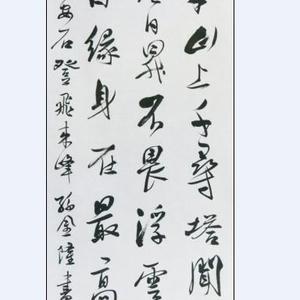 山上千尋塔聞
日昇不畏浮雲
自緣身在最高
安石登飛来峰孫金書